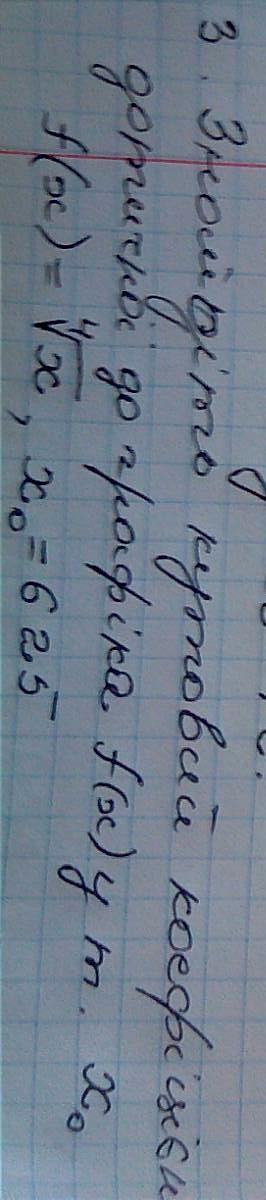 3. Знайдіть кутовий коефіцієн
дотичної до графіка f(x) у т. x₀
f(x) = ∜x, x₀ = 625